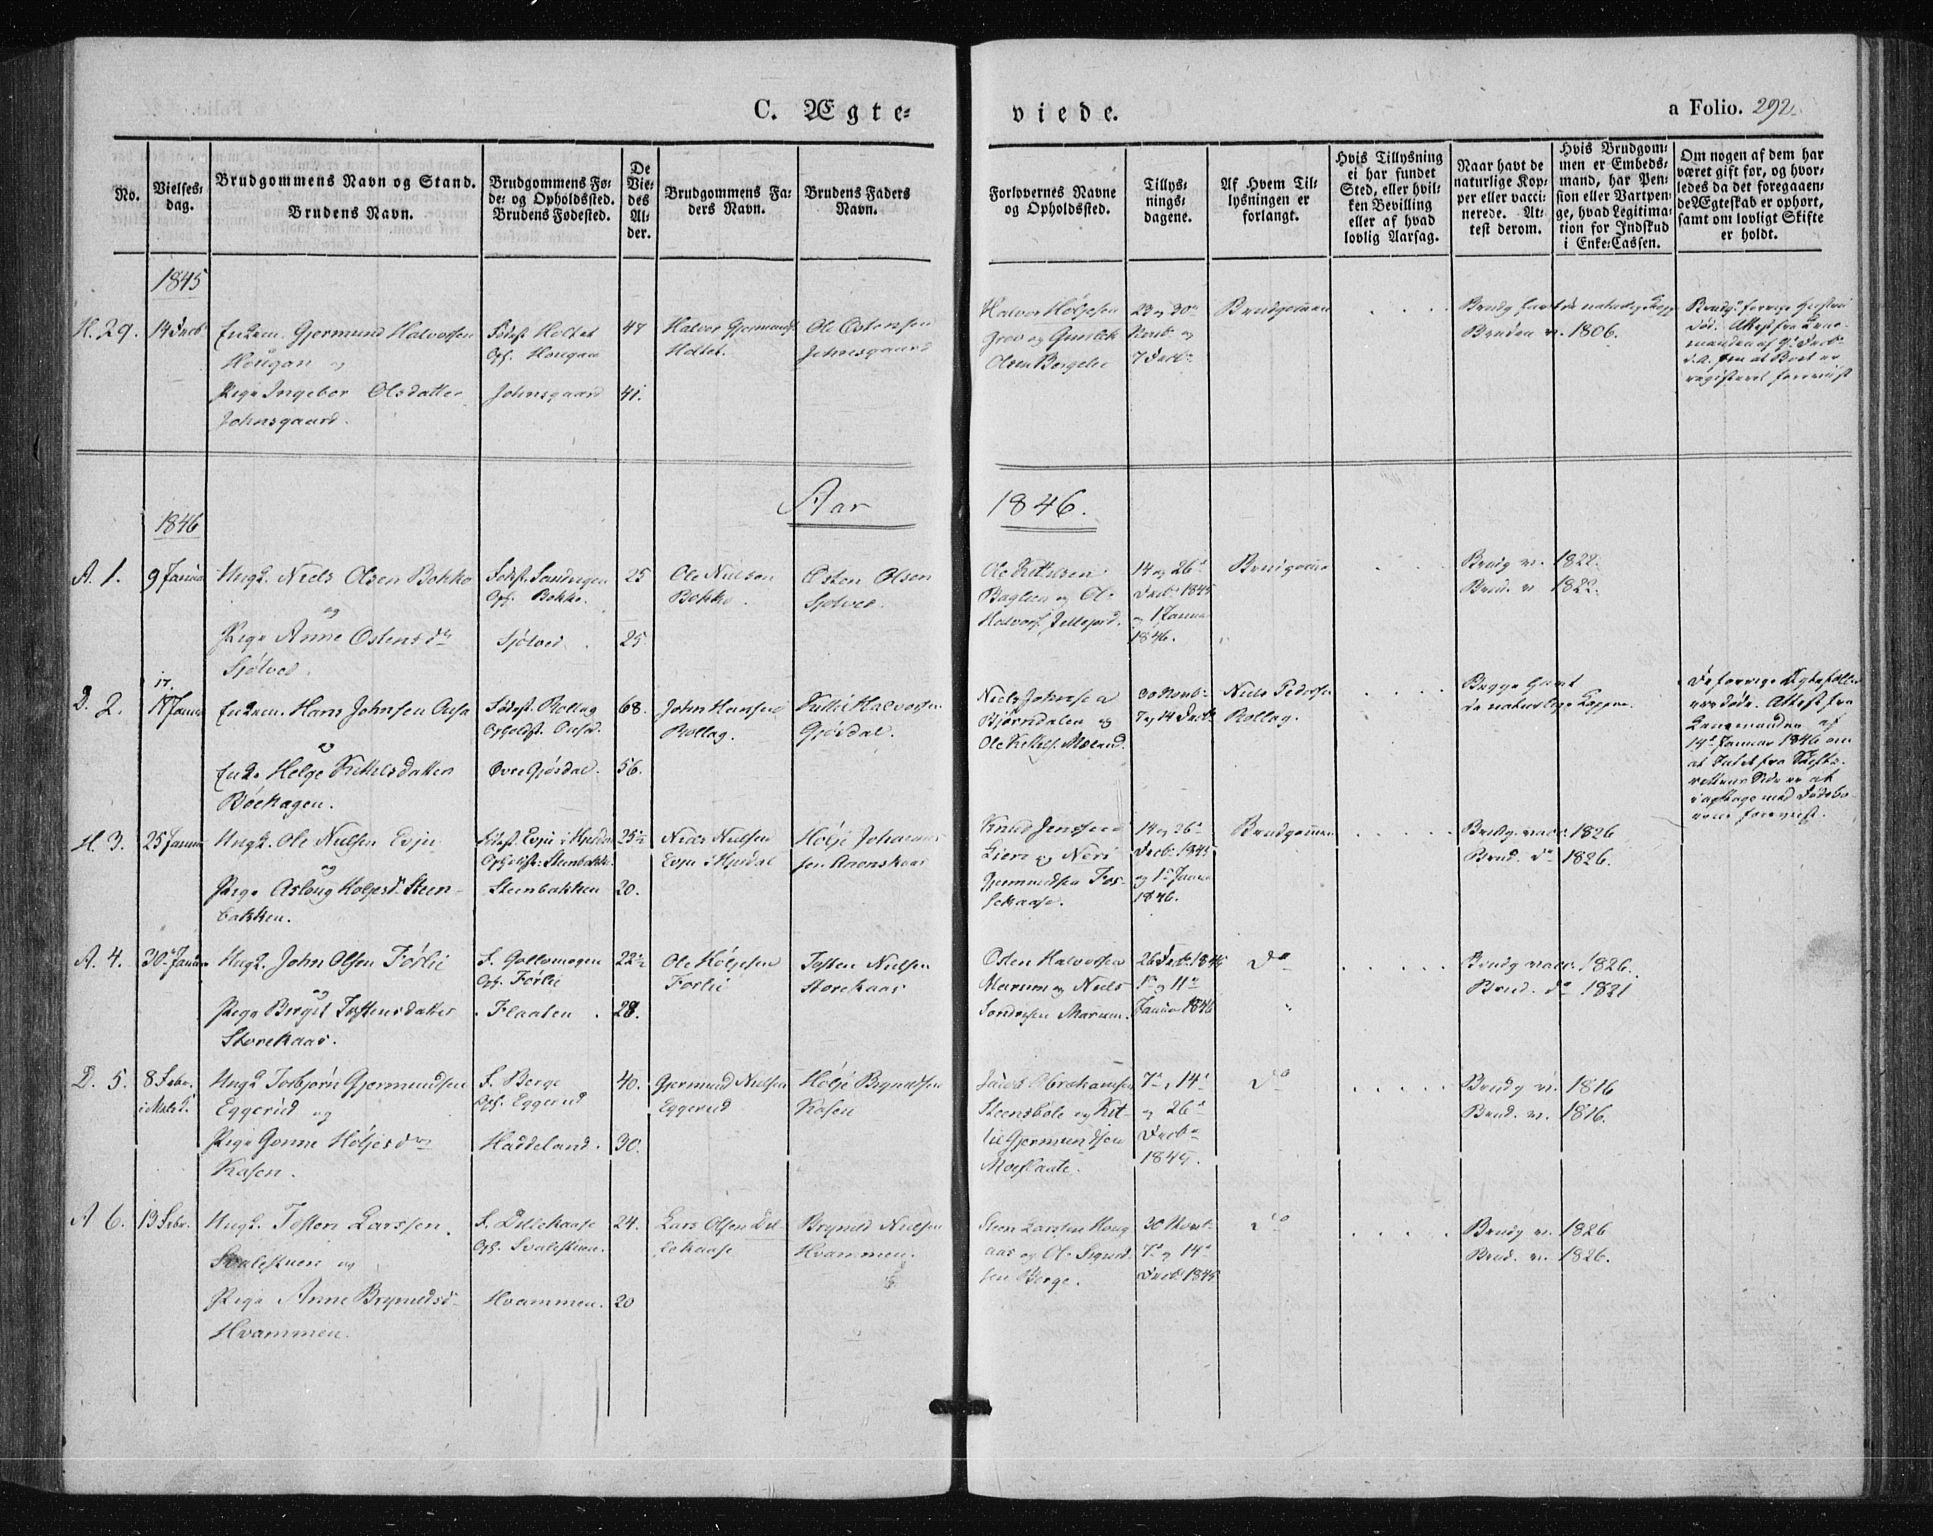 C. Ægte-
viede.
a Folio. 292.
No.
Vielses-
dag.
Brudgommens Navn og Stand.
Brudens Navn.
Brudgommens Fø-
de- og Opholdssted.
Brudens Fødested.
De
Vie-
des
Al-
der.
Brudgommens Fa-
ders Navn.
Brudens Faders
Navn.
Forlovernes Navne
og Opholdssted.
Tillys-
nings-
dagene.
Af Hvem Til-
lysningen er
forlangt.
Hvis Tillysning
ei har fundet
Sted, eller hvil-
ken Bevilling
eller af hvad
lovlig Aarsag.
Naar havt de
naturlige Kop-
per eller vacci-
nerede. At-
test derom.
Hvis Brudgom-
men er Embeds-
mand, har Pen-
sion eller Vartpen-
ge, hvad Legitima-
tion for Indskud
i Enke-Cassen.
Om nogen af dem har
været gift før, og hvor-
ledes da det foregaaen-
de Ægteskab er ophørt,
samt om lovligt Skifte
er holdt.
1845
H. 29.
14 Decb
Enkem. Gjermund Halvorsen
Hougan og
Pige Ingebor Olsdatter
Johnsgaard.
Fødest. Holtet
Oph. Hougan
Johnsgaard
47
41.
Halvor Gjermunds.
Holtet.
Ole Østensen
Johnsgaard
Halvor Høljesen
Grov og Gunlek
Olsen Bergelie
23 og 30te
Novb og
7 Decbr
Brudgommen
Bruden v. 1806.
Aar
1846.
1846
A. 1.
9 Januar
Ungk. Niels Olsen Bokko
og
Pige Anne Østensdr
Sjølved.
Fødest. Sandvigen
Oph. Bokko.
Sjølved
25
25.
Ole Nielsen
Bokko.
Østen Olsen
Sjølved.
Ole Kittelsen
Baglien og Ole
Halvors. Jellejord.
14 og 26de
Decbr 1845
og 1 Januar
1846.
Brudgommen
Brudg v. 1822.
Brud. v. 1822.
D. 2.
17.
Januar
Enkem. Hans Johnsen
og
Enke Helge Kittelsdatter
Bøehagen.
Fødest. Rollag
Øvre Gjøsdal.
68.
56.
John Hansen
Rollag.
Kittil Halvorsen
Gjøsdal.
Niels Johnsen
Bjørndalen og
Ole Kittels. Mæland.
30 Novbr
7 og 14 Decbr
Niels Pedersen
Rollag.
Begge havt
de naturlige Kopper.
De forrige Ægtefæller
ere døde. Attest fra
Lensmanden af
14de Januar 1846 om
H. 3.
25 Januar
Ungk. Ole Nielsen Evju
og
Pige Aslaug Holjesd. Steen-
bakken.
Fødest. Evju i Hjerdal
Opholdst. Steenbakke.
Steenbakken
25½
20.
Niels Nielsen
Evju i Hjerdal
Holje Johannes-
sen
Knud Jenssen
Lien og Neri
Gjermundsen Fos-
sehaase.
14 og 26de
Decbr 1845
og 1ste Januar
1846.
Brudgommen
Brudg. vacc. 1826
Brud. do 1826.
A. 4.
30te Januar
Ungk. John Olsen Førlie
og
Pige Birgit Tostensdatter
Storekaas.
F. Gollomogen
Oph. Førlie
Flaaten
22½
28.
Ole Holjesen
Førlie
Tosten Nielsen
Storekaas
Oden Halvorsen
Marum og Niels
Sondresen Marum.
26 Decbr 1845
1ste og 11te
Januar 1846
do
Brudg vacc. 1826.
Brud. do 1821
D. 5.
8 Febr.
Ungk Torbjørn Gjermundsen
Eggerud og
Pige Gonne Høljesdr
Kasen.
F. Berge
Oph. Eggerud
Haddeland.
40.
30.
Gjermund Nielsen
Eggerud
Hølje Brynildsen
Kasen
Jacob Abrahamsen
Steensbøle og Kit-
til Gjermundsen
Moeflaate.
7de, 14de
og 26de
Decbr
1845.
do
Brudg v. 1816
Brud. v. 1816.
A 6.
13 Febr.
Ungk. Tosten Larssen
Svalestuen og
Pige Anne Brynildsd.
Hvammen.
F. Lillehaase
Oph. Svalestuen.
Hvammen.
24.
20
Lars Olsen Lil-
lehaase
Brynild Nielsen
Hvammen.
Steen Larssen Houg-
aas og Ole Sigurd-
sen Berge.
30 Novbr
7de og 14de
Decbr 1845
do
Brudg v. 1826
Brud. v. 1826.